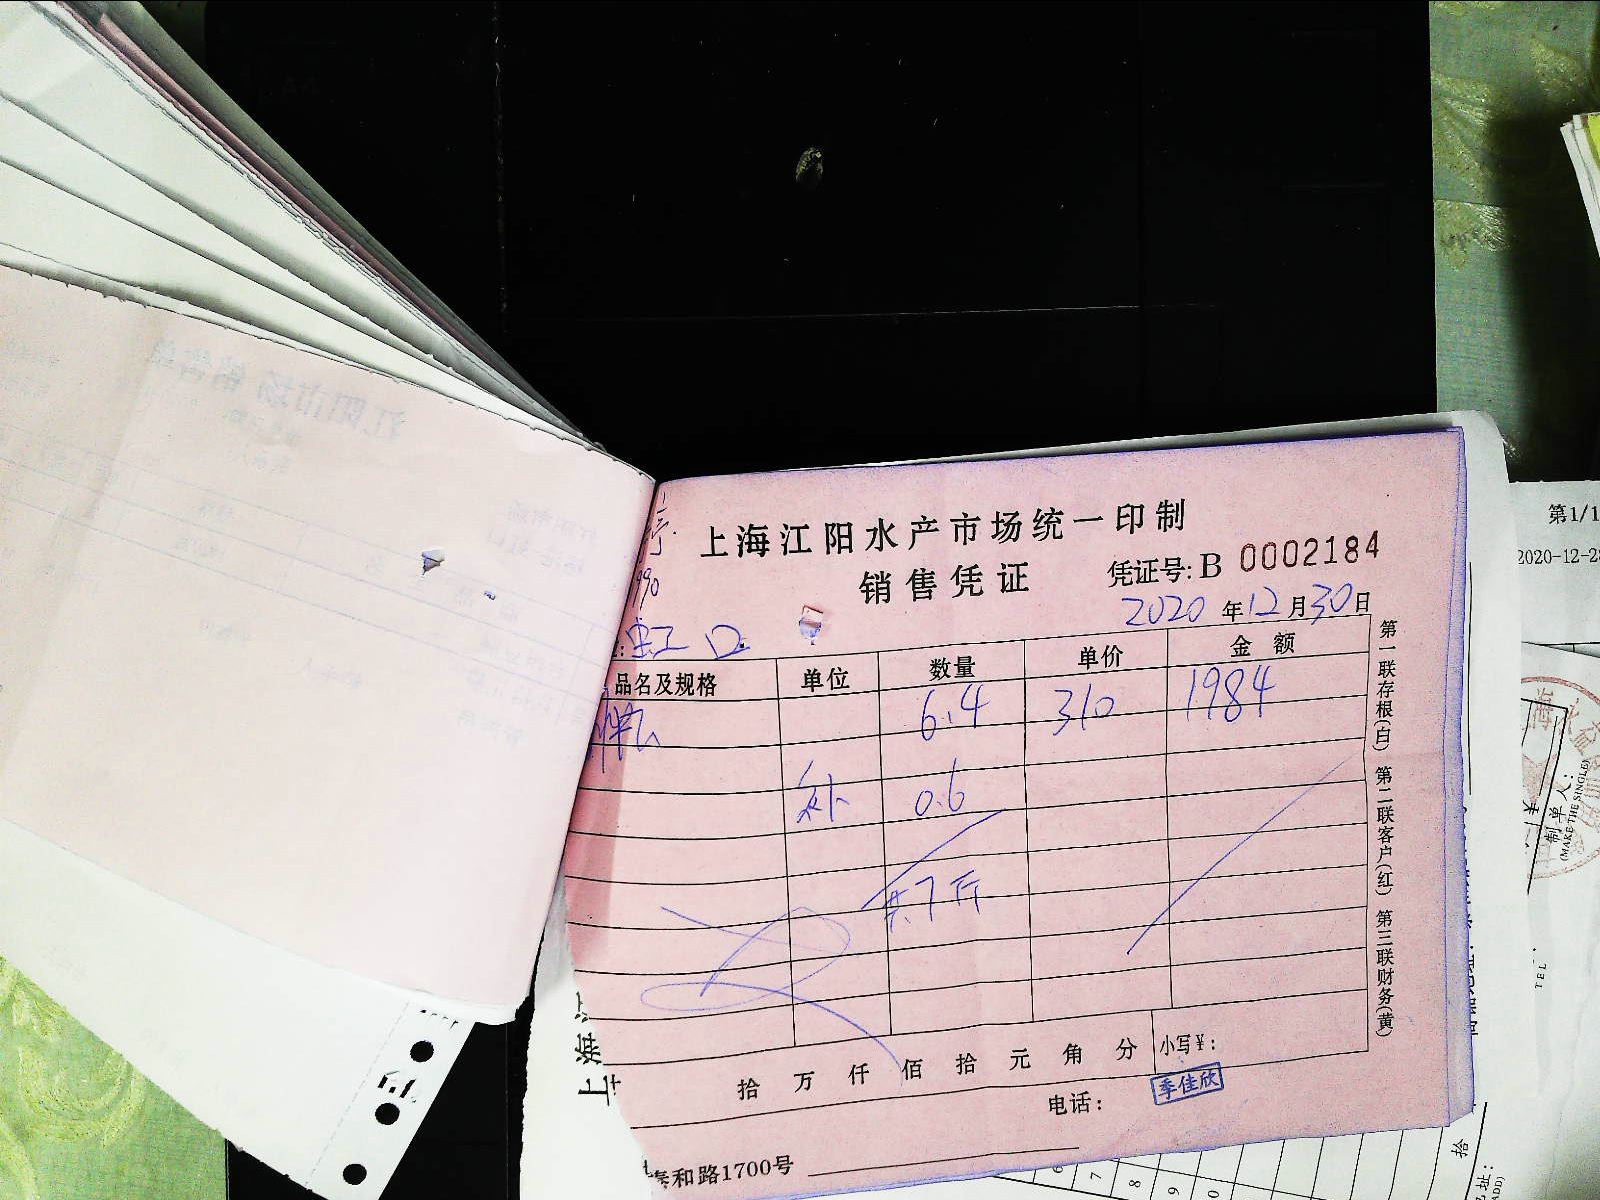 上海江阳水产市场统一印制
销售凭证
凭证号: B 0002184
990
2020 年 12 月 30 日
: 虹口
品名及规格 单位 数量 单价 金额
6.4 310 1984
补 0.6
共7斤
拾 万 仟 佰 拾 元 角 分 小写¥:
季佳欣
电话:
泰和路1700号
第一联存根(白) 第二联客户(红) 第三联财务(黄)
第1/1
2020-12-28
制单人:
(MAKE THE SINGLE)
TEL
上海江
6 7 8 9 0
拾